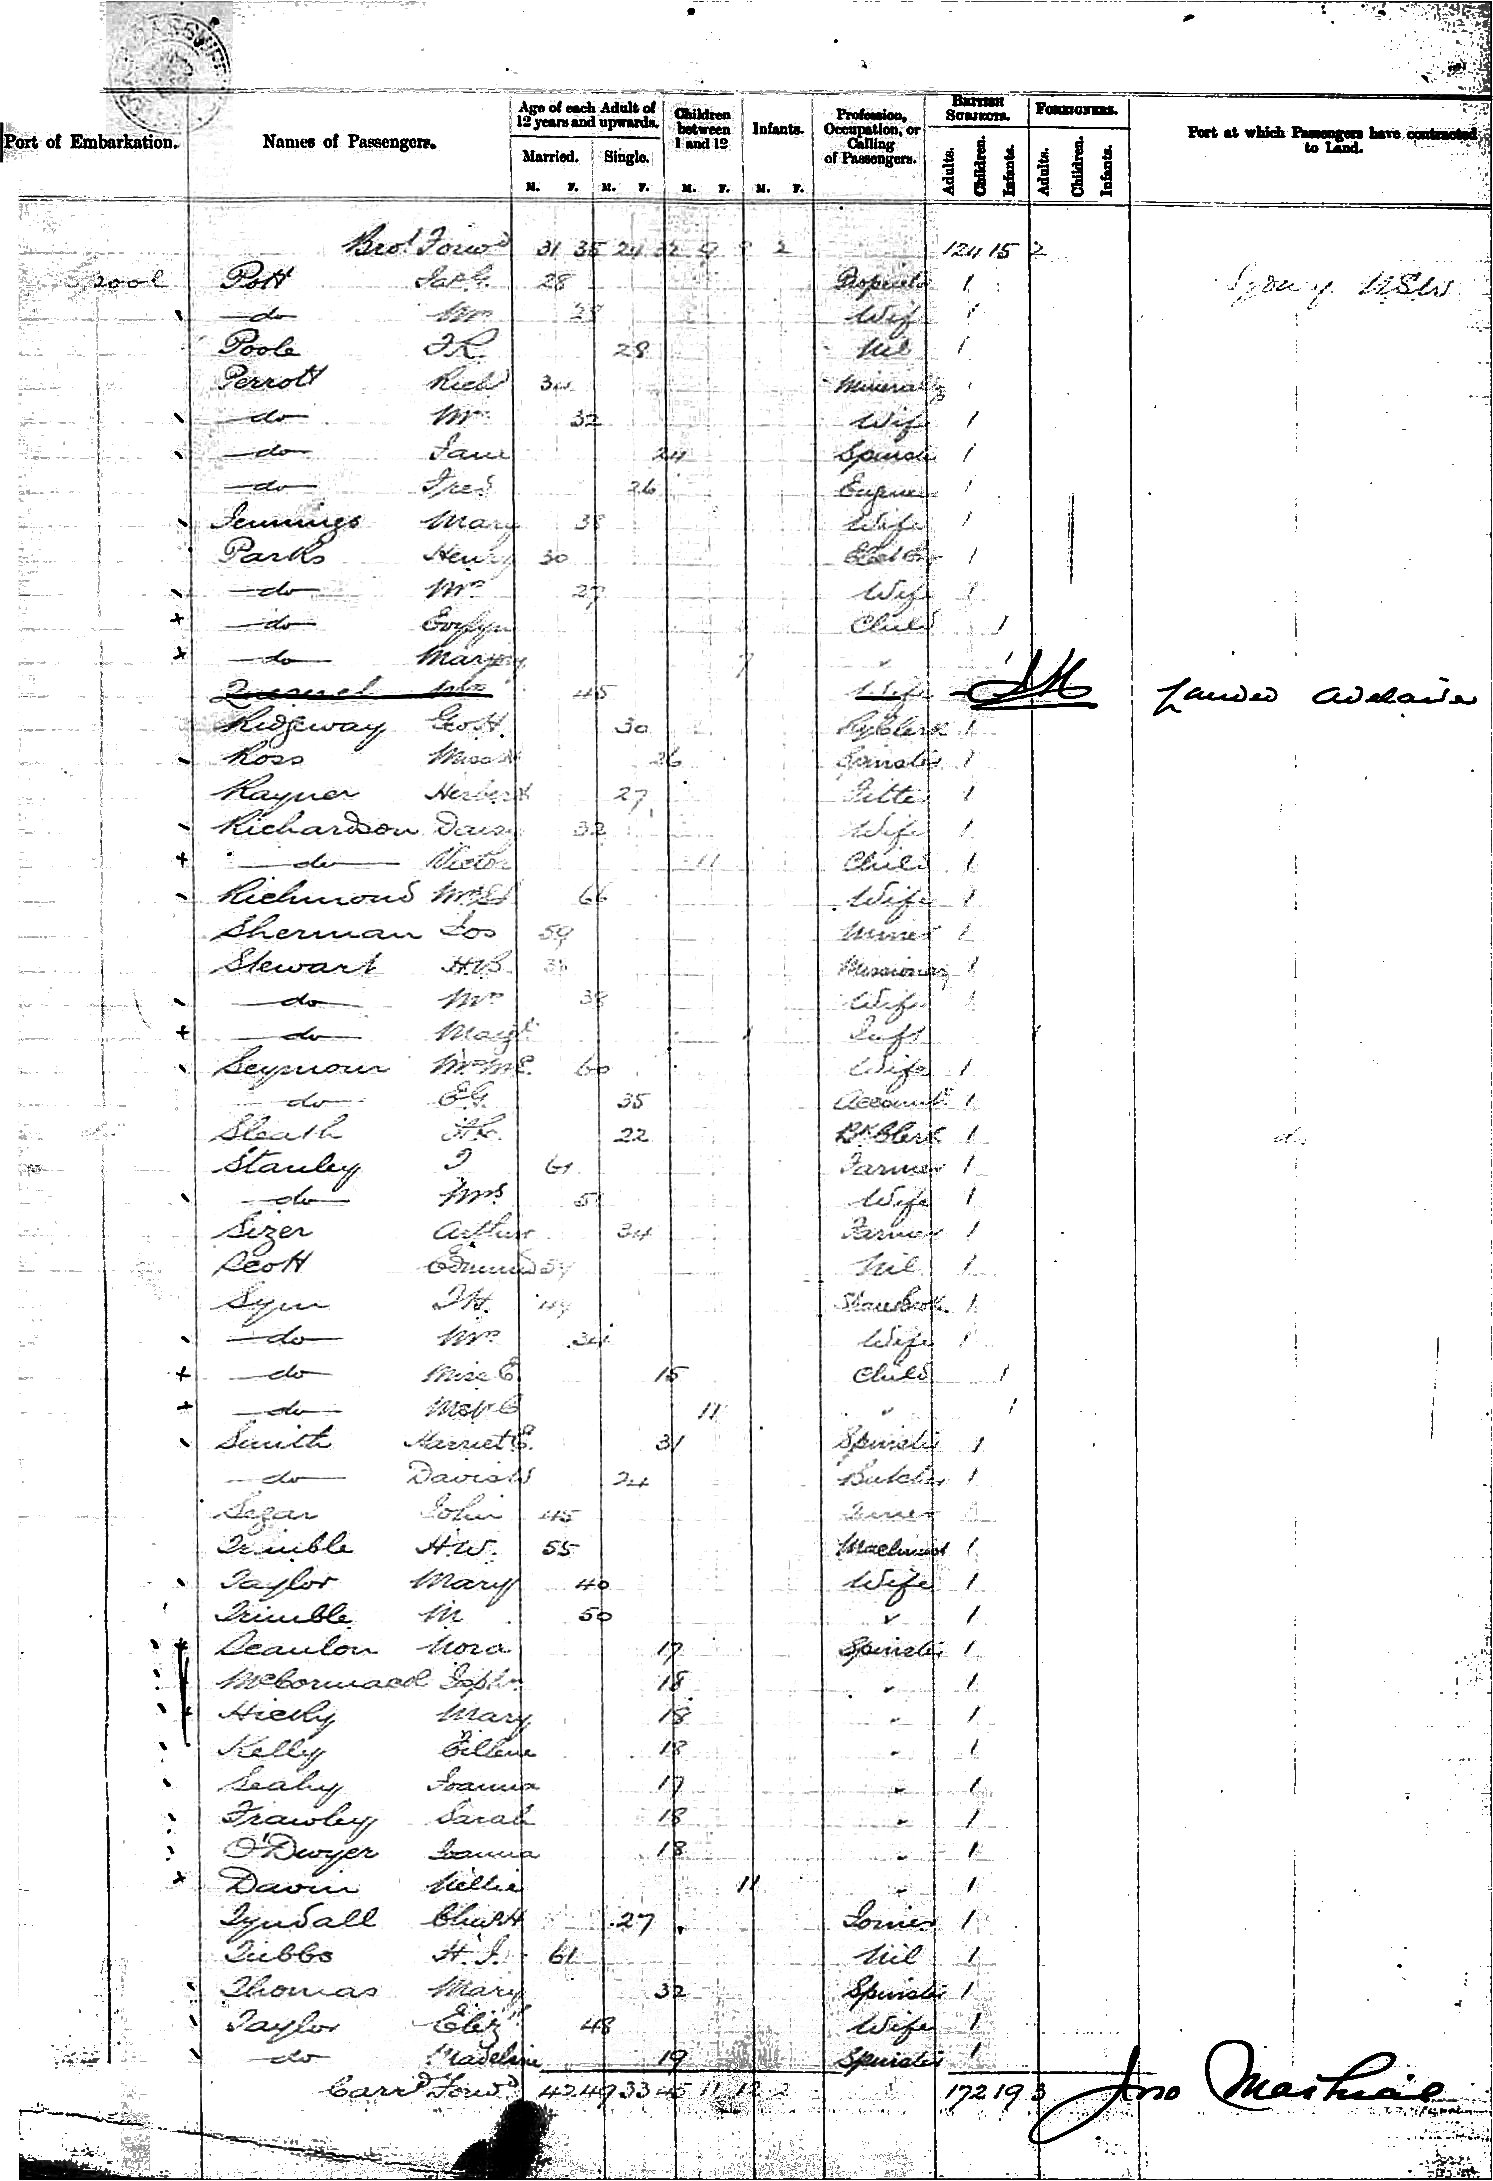 Port of Embarkation. Names of Passengers. Age of each Adult of 12 years and upwards. Married. Single. Children between 1 and 12 Infants. Profession, Occupation, or Calling of Passengers. British Subjects. Adults. Children. Infants. Foreigners. Adults. Children. Infants. Port at which Passengers have contracted to Land.
M. F. M. F. M. F. M. F.
Brot Forwd 31 35 24 32 9 9 2 124 15 2
pool Pott Jas. G. 28 1 Sydney NSW
do Mrs Wife 1
Poole 28 Nil 1
Perrott Richd 34
do Mrs 32 Wife 1
do Jane 24 1
do Fred 26 1
Jennings Mary 38 Wife 1
Parks Henry 30 1
do Mrs 27 Wife 1
do Evelyn Child 1
do 7 "
Mrs 45 Wife Landed Adelaide
Ridgeway Geo. H. 30 Ry Clerk 1
Ross Miss 26 Spinster 1
Rayner Herbert 27 Fitter 1
Richardson Daisy 32 Wife 1
do Victor 11 Child 1
Richmond Mrs 66 Wife 1
Sherman Jos 59 Miner 1
Stewart H.B. Missionary 1
do Mrs 38 Wife 1
do Margt 1 Inft 1
Seymour Mrs M.E. 60 Wife 1
do E.G. 35 Accountt 1
Sleath 22 Bk Clerk 1 do
Stanley J 61 Farmer 1
do Mrs Wife 1
Sizer Arthur 34 Farmer 1
Scott Edmund Nil 1
Sym J.H. 49 Sharebrok. 1
do Mrs 34 Wife 1
do Miss E 15 Child 1
do 11 " 1
Smith Harriet E. 31 Spinster 1
do David W 24 Butcher 1
John 45
Trimble H.W. 55 Machinist 1
Taylor Mary 40 Wife 1
Trimble M 50 " 1
Scanlon Nora 17 Spinster 1
McCormack Joph. 18 " 1
Hickey Mary 18 " 1
Kelly Eillene 18 " 1
Leahy Joanna 17 " 1
Frawley Sarah 18 " 1
O'Dwyer Joanna 18 " 1
Davin Nellie 11 " 1
Tyndall Chas H 27 Joiner 1
Tubbs H.J. 61 Nil 1
Thomas Mary 32 Spinster 1
Taylor Elizth 48 Wife 1
do Madeline 19 Spinster 1
Carrd Forwd 42 49 33 45 11 12 2 172 19 3 Jno